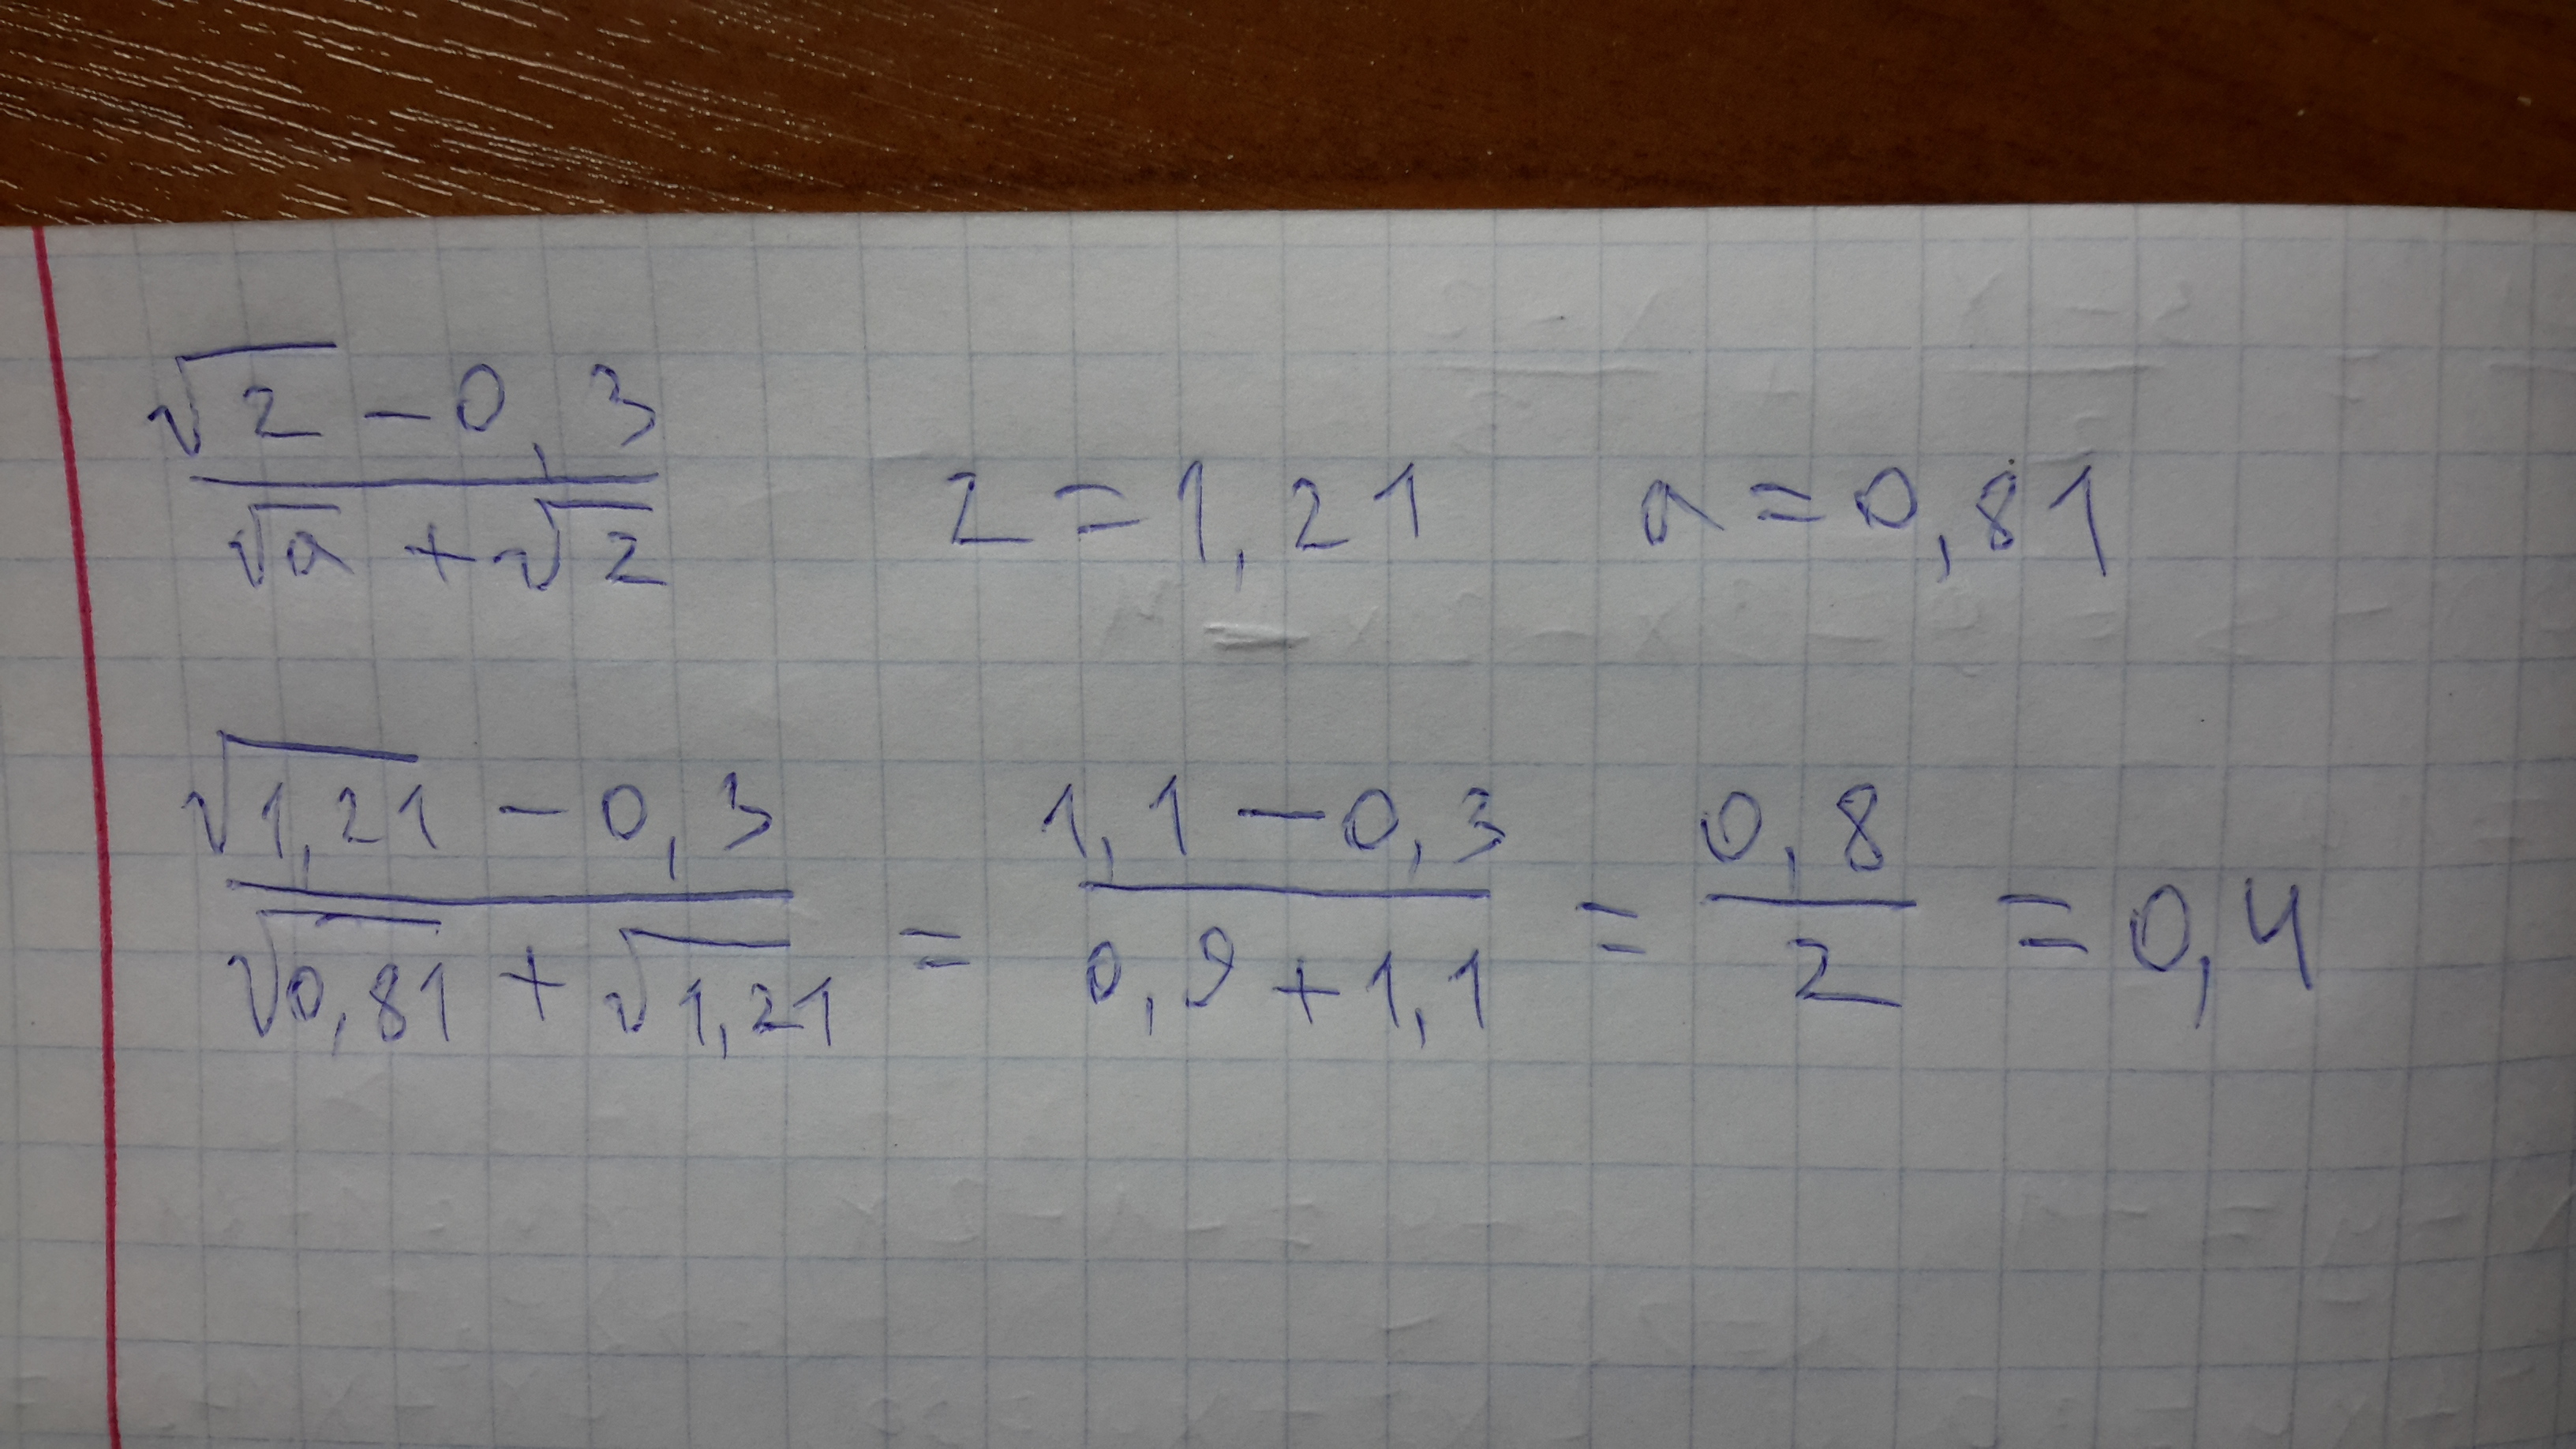 (√z - 0,3)/(√a + √z)   z = 1,21   a = 0,81
(√1,21 - 0,3)/(√0,81 + √1,21) = (1,1 - 0,3)/(0,9 + 1,1) = 0,8/2 = 0,4